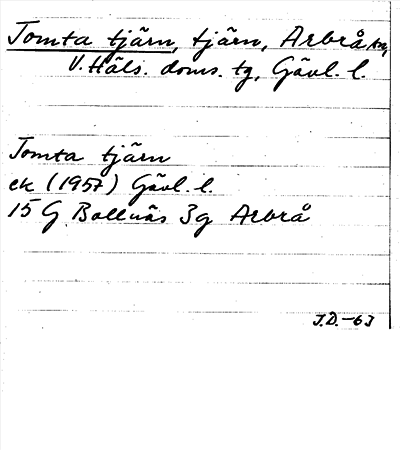 Tomta tjärn, tjärn, Arbrå sn,
V. Häls. doms. tg, Gävl. l.
Tomta tjärn
ek (1957) Gävl. l.
15 G Bollnäs 3g Arbrå
J.D.-63